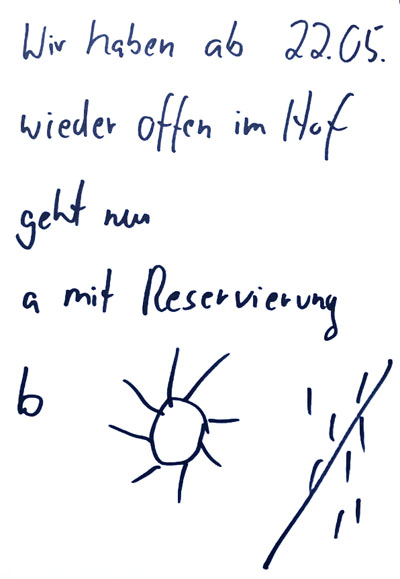 Wir haben ab 22.05.
wieder offen im Hof
geht nur
a mit Reservierung
b